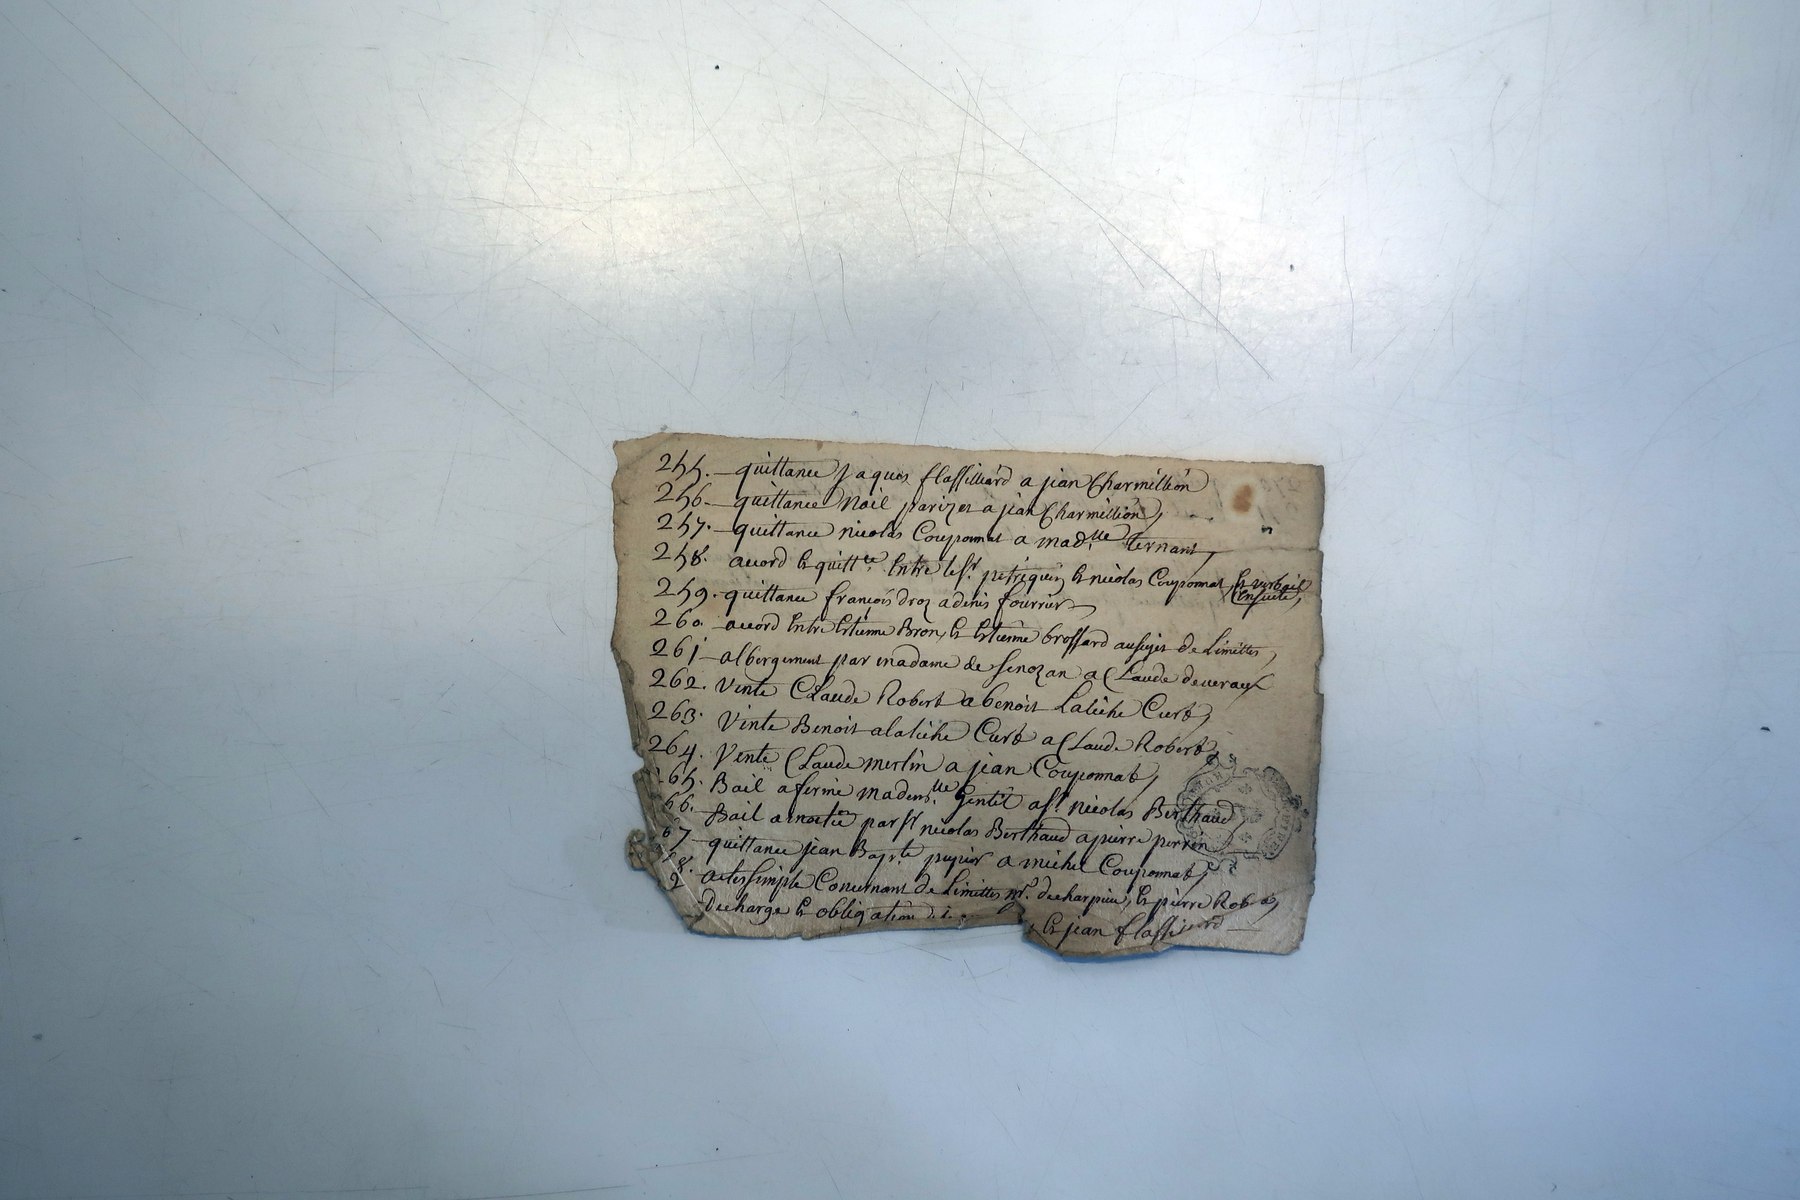 255. quittance Jaques flassilliard a jean Charmillion
256. quittance Noil parizet a jean Charmillion,
257. quittance nicolas Couponnat a mad.lle ternant,
258. acord et quitt.ce Entre le Sr. petrequin et nicolas Couponnat, et verbail Ensuite,
259. quittance françois droz a denis fourrier
260. acord Entre Etienne Bron, et Etienne brossard au sujet de Limittes,
261 albergement par madame de Senozan a Claude deveraux
262. Vente Claude Robert a benoit Lalèche Curé,
263. Vente Benoit alalèche Curé a Claude Robert,
264. Vente Claude merlin a jean Couponnat,
65. Bail a ferme madem.lle Gentil a Sr. nicolas Berthaud,
66. Bail a moitié par Sr nicolas Berthaud a pierre perren
67 quittance jean Bap.te pupier a michel Couponnat,
8. actes simple Concernant de Limittes mr. decharpine, et pierre Rob
decharge et obligation
et jean flassi